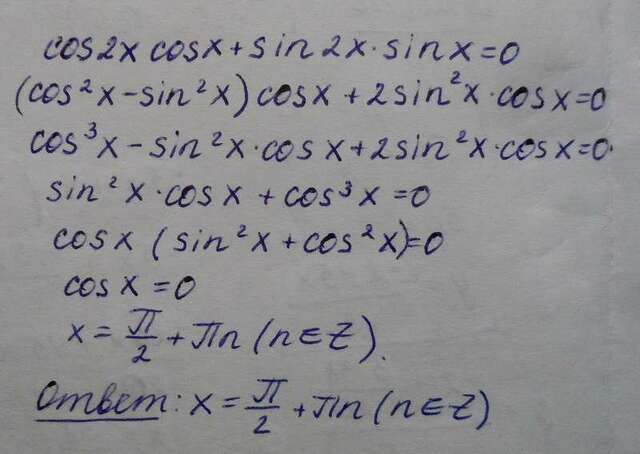 cos2x cosx + sin2x·sinx=0
(cos²x-sin²x)cosx + 2sin²x·cosx=0
cos³x-sin²x·cosx+2sin²x·cosx=0
sin²x·cosx + cos³x=0
cosx (sin²x+cos²x)=0
cosx=0
x=π/2+πn(n∈Z).
Ответ: x=π/2+πn(n∈Z)